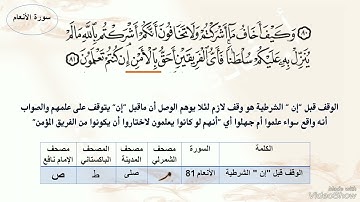 سورة الأنعام
٨٠ وَكَيْفَ أَخَافُ مَا أَشْرَكْتُمْ وَلَا تَخَافُونَ أَنَّكُمْ أَشْرَكْتُم بِاللَّهِ مَا لَمْ
يُنَزِّلْ بِهِ عَلَيْكُمْ سُلْطَانًا فَأَيُّ الْفَرِيقَيْنِ أَحَقُّ بِالْأَمْنِ إِن كُنتُمْ تَعْلَمُونَ ٨١
الوقف قبل "إن " الشرطية هو وقف لازم لئلا يوهم الوصل أن ماقبل "إن" يتوقف على علمهم والصواب
أنه واقع سواء علموا أم جهلوا أي "أنهم لو كانوا يعلمون لاختاروا أن يكونوا من الفريق المؤمن"
الكلمة السورة مصحف الشمرلي مصحف المدينة المصحف الباكستاني مصحف الإمام نافع
الوقف قبل "إن " الشرطية الأنعام 81 م صلى ط ص
Made with
VideoShow